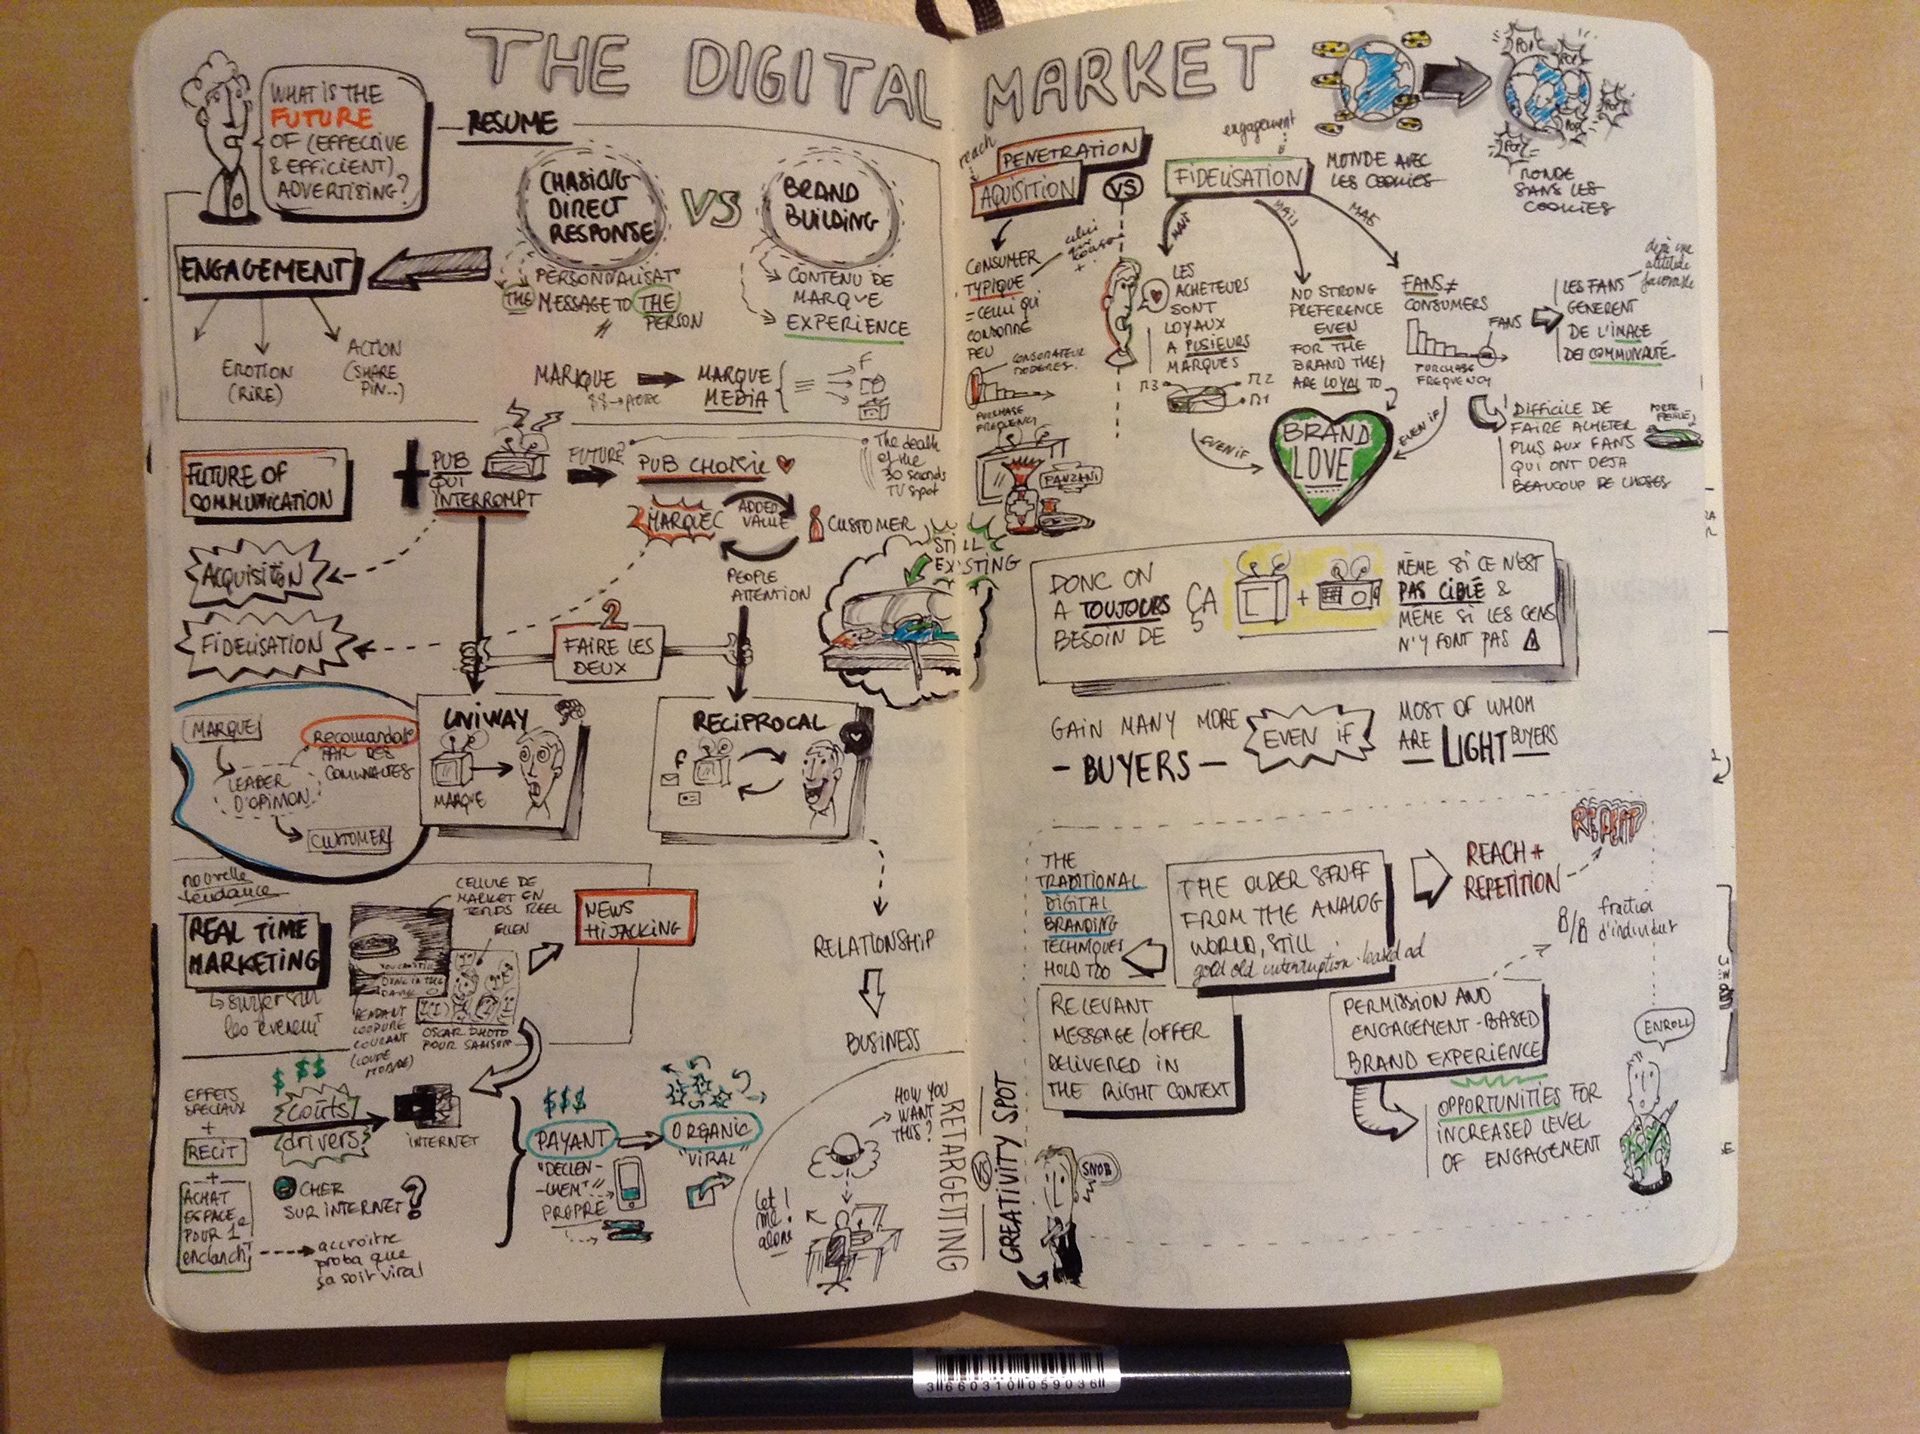 THE DIGITAL MARKET
WHAT IS THE
FUTURE
OF (EFFECTIVE
& EFFICIENT)
ADVERTISING?
RESUME
CHASING
DIRECT
RESPONSE
VS
BRAND
BUILDING
ENGAGEMENT
EMOTION
(RIRE)
ACTION
(SHARE
PIN...)
PERSONNALISAT°
THE MESSAGE TO THE
PERSON
CONTENU DE
MARQUE
EXPERIENCE
MARQUE
MARQUE
MEDIA
FUTURE OF
COMMUNICATION
PUB
QUI
INTERROMPT
FUTURE?
PUB CHOISIE
The death
of the
30 seconds
TV spot
MARQUE
ADDED
VALUE
CUSTOMER
PEOPLE
ATTENTION
STILL
EXISTING
ACQUISITION
FIDELISATION
2
FAIRE LES
DEUX
MARQUE
RECOMANDAT°
PAR DES
COMMNAUTES
LEADER
D'OPINION
CUSTOMER
UNIWAY
MARQUE
RECIPROCAL
RELATIONSHIP
BUSINESS
nouvelle
tendance
REAL TIME
MARKETING
surfer sur
les évenemt
CELLULE DE
MARKET EN
TEMPS REEL
ELLEN
YOU CAN STILL
DUNK IN THE
DARK
PENDANT
COUPURE
COURANT
OSCAR PHOTO
POUR SAMSUM
NEWS
HIJACKING
EFFETS
SPECIAUX
+
RECIT
+
ACHAT
ESPACE
POUR 1er
enclancht
$ $$
coûts
drivers
INTERNET
CHER
SUR INTERNET?
accroitre
proba que
ça soit viral
$$$
PAYANT
"DECLEN-
-CHEMt"
PROPRE
ORGANIC
"VIRAL"
HOW YOU
WANT
THIS?
let
me!
alone
RETARGETING
VS
CREATIVITY SPOT
SNOB
reach
PENETRATION
AQUSITION
VS
engagement
FIDELISATION
MONDE AVEC
LES COOKIES
POP!
MONDE
SANS LES
COOKIES
CONSUMER
TYPIQUE
= CELUI QUI
CONSOMME
PEU
PURCHASE
FREQUENCY
MAIS
LES
ACHETEURS
SONT
LOYAUX
A PLUSIEURS
MARQUES
M3
M2
M1
MAIS
NO STRONG
PREFERENCE
EVEN
FOR THE
BRAND THEY
ARE LOYAL TO
MAIS
FANS ≠
CONSUMERS
FANS
PURCHASE
FREQUENCY
LES FANS
GENERENT
DE L'IMAGE
DE COMMUNAUTÉ
déjà une
attitude
favorable
EVEN IF
BRAND
LOVE
EVEN IF
DIFFICILE DE
FAIRE ACHETER
PLUS AUX FANS
QUI ONT DEJA
BEAUCOUP DE CHOSES
PORTE
FEUILLE
PANZANI
DONC ON
A TOUJOURS
BESOIN DE
ÇA
+
MÊME SI CE N'EST
PAS CIBLÉ &
MÊME SI LES GENS
N'Y FONT PAS
GAIN MANY MORE
- BUYERS -
EVEN IF
MOST OF WHOM
ARE LIGHT BUYERS
THE
TRADITIONAL
DIGITAL
BRANDING
TECHNIQUES
HOLD TOO
THE OLDER STUFF
FROM THE ANALOG
WORLD, STILL
good old interruption-based ad
REACH +
REPETITION
REPEAT
8/8 fraction
d'individut
RELEVANT
MESSAGE/OFFER
DELIVERED IN
THE RIGHT CONTEXT
PERMISSION AND
ENGAGEMENT-BASED
BRAND EXPERIENCE
ENROLL
OPPORTUNITIES FOR
INCREASED LEVEL
OF ENGAGEMENT
3 660310 059036